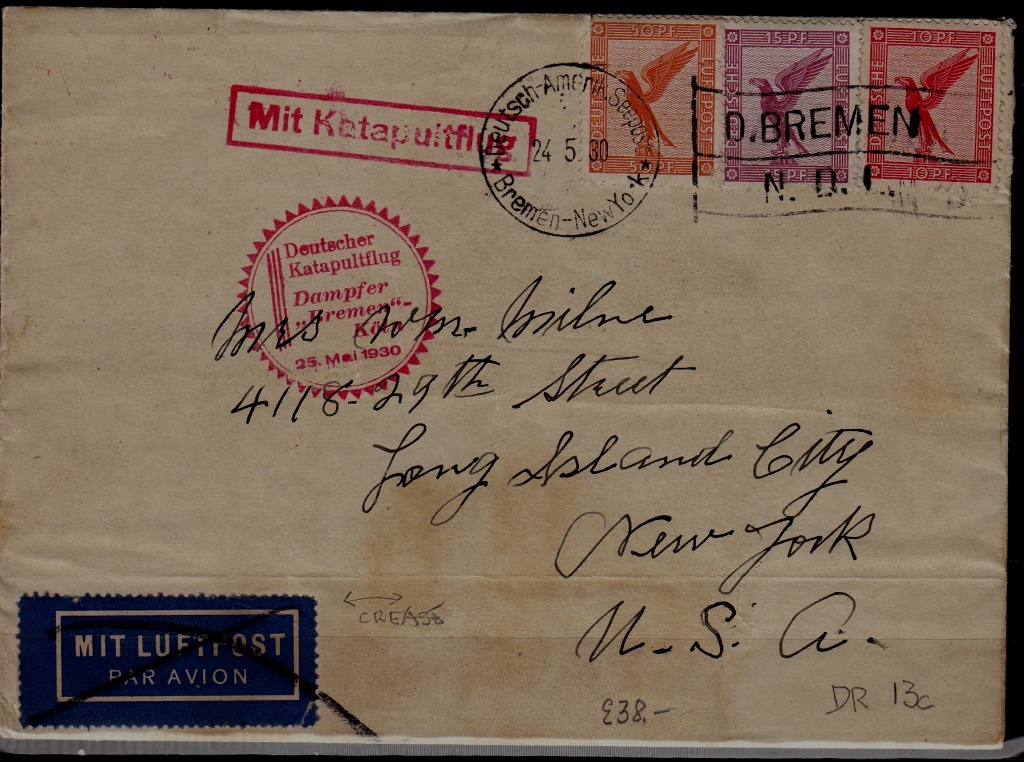 50 PF.
DEUTSCHE
LUFTPOST
50 PF.
15 P.F.
DEUTSCHE
LUFTPOST
15 PF.
10 P.F.
DEUTSCHE
LUFTPOST
10 PF.
Mit Katapultflug
Deutsch-Amerik. Seepost
24 5 30
Bremen-New York
D. BREMEN
N. D. L.
Deutscher
Katapultflug
Dampfer
„Bremen“-
Köln
25. Mai 1930
Mrs Wm. Milne
4118-29th Street
Long Island City
New York
U. S. A.
CREASE
MIT LUFTPOST
PAR AVION
£38.-
DR 13c